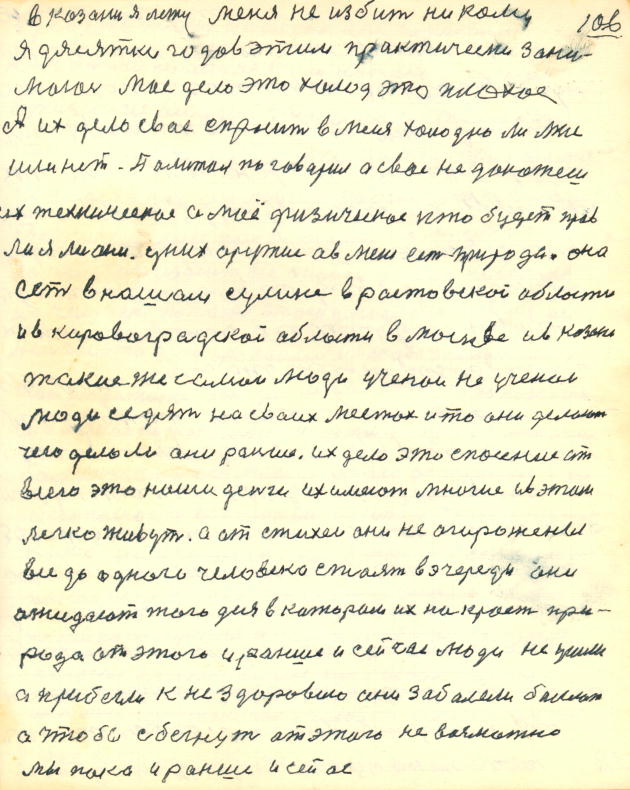 в казани я лежу меня не избит никому 106
я десятки годов этим практически зани-
маюся мае дело это холод это плохое
А их дело свае спросит в меня холодно ли мне
или нет. Политам поговарил а свае не докожеш
их техническае а маё физическае кто будет прав
ли я ли они. у них аружие а в мене ест природа. она
сеть в нашам сулине в растовской области
и в кировоградской области в москве и в козани
такие же самаи люди ученаи не ученаи
люди седят на сваих местах и то они делают
чего делали они раньше. их дело это спосение от
всего это наши денги их имеют многие и в этам
легко живут. а от стихеи они не огорожены
все до одного человека стаят в очереди они
ожидают того дня в каторам их на кроет при-
рода от этого и раньше и сейчас люди не ушли
а прибегли к не здоровию они забалели балеют
а чтобы сбегнут от этого не вазможно
мы пака и раньше и сейчас